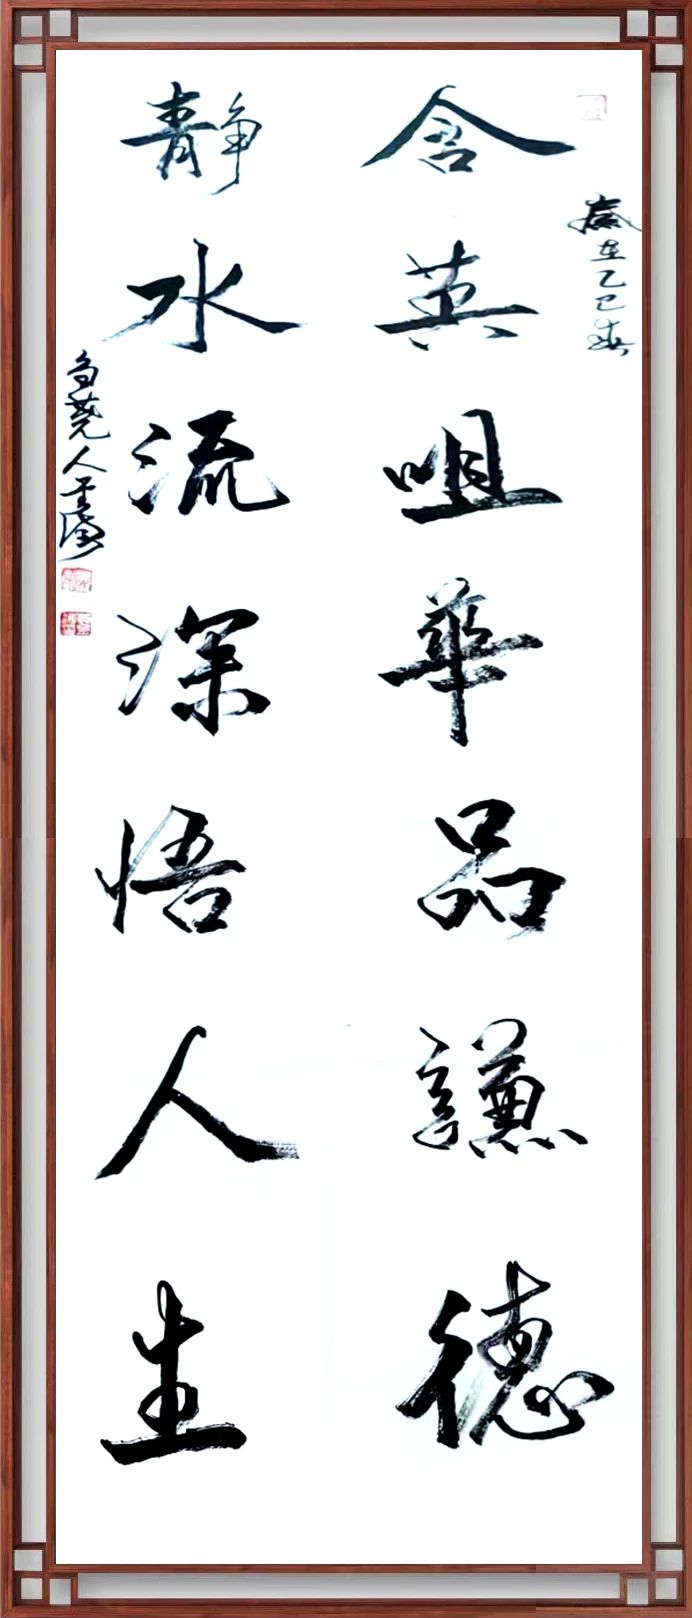 含英咀華品謙德
歲在乙巳春
靜水流深悟人生
芻蕘人